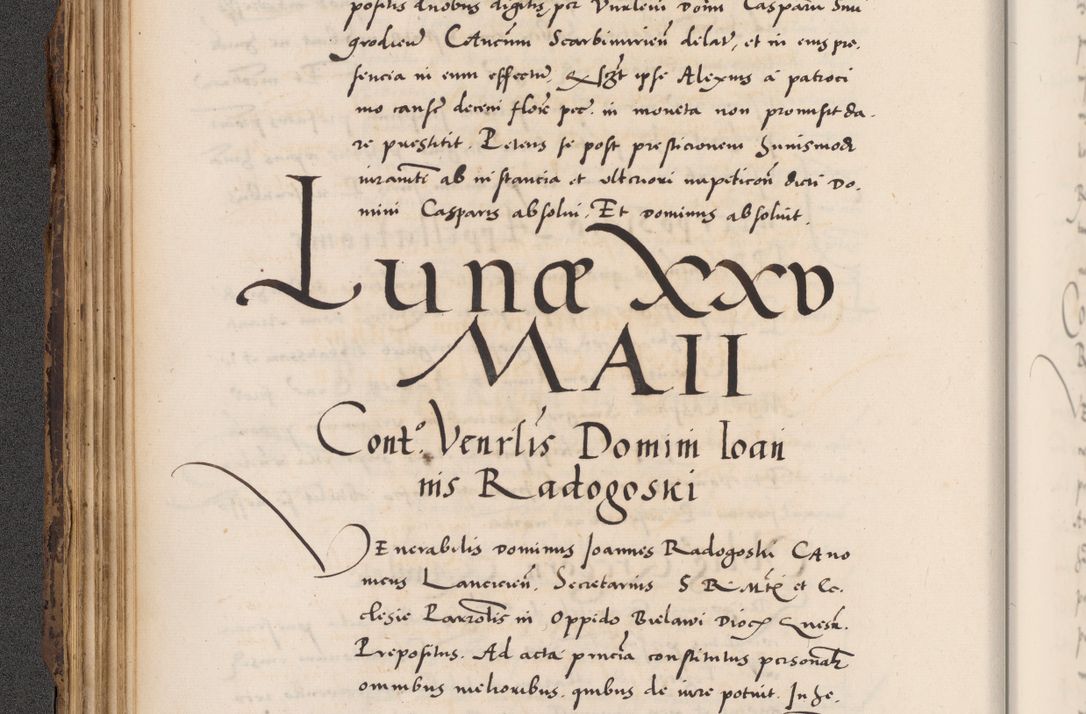 positis duobus digitis per Vnrlem Domi Casparu Snu
grodieñ Canicum Scarbimirień delat, et in eius pre-
sencia in eum effectu. ipse Alexius a patroci
nio causę deceni flore pec. in moneta non promisit da-
re prestitit. Petens se post presticionem huiusmodi
iuramti ab instancia et vlteriori impeticoñ dicti Do-
mini Casparis absolui. Et dominus absoluit.
Lunæ XXV
MAII
Conto. Venrlis Domini Ioan
nis Radogoski
VEnerabilis dominus Joannes Radogoski CAno
nicus Lancicień. Secretarius S R Mtis et Ec-
clesie Parrotis in Oppido Bielawi Dioc Gnesń.
Prepositus. Ad acta pncia constitutus personalr
omnibus melioribus. quibus de iure potuit. In he-